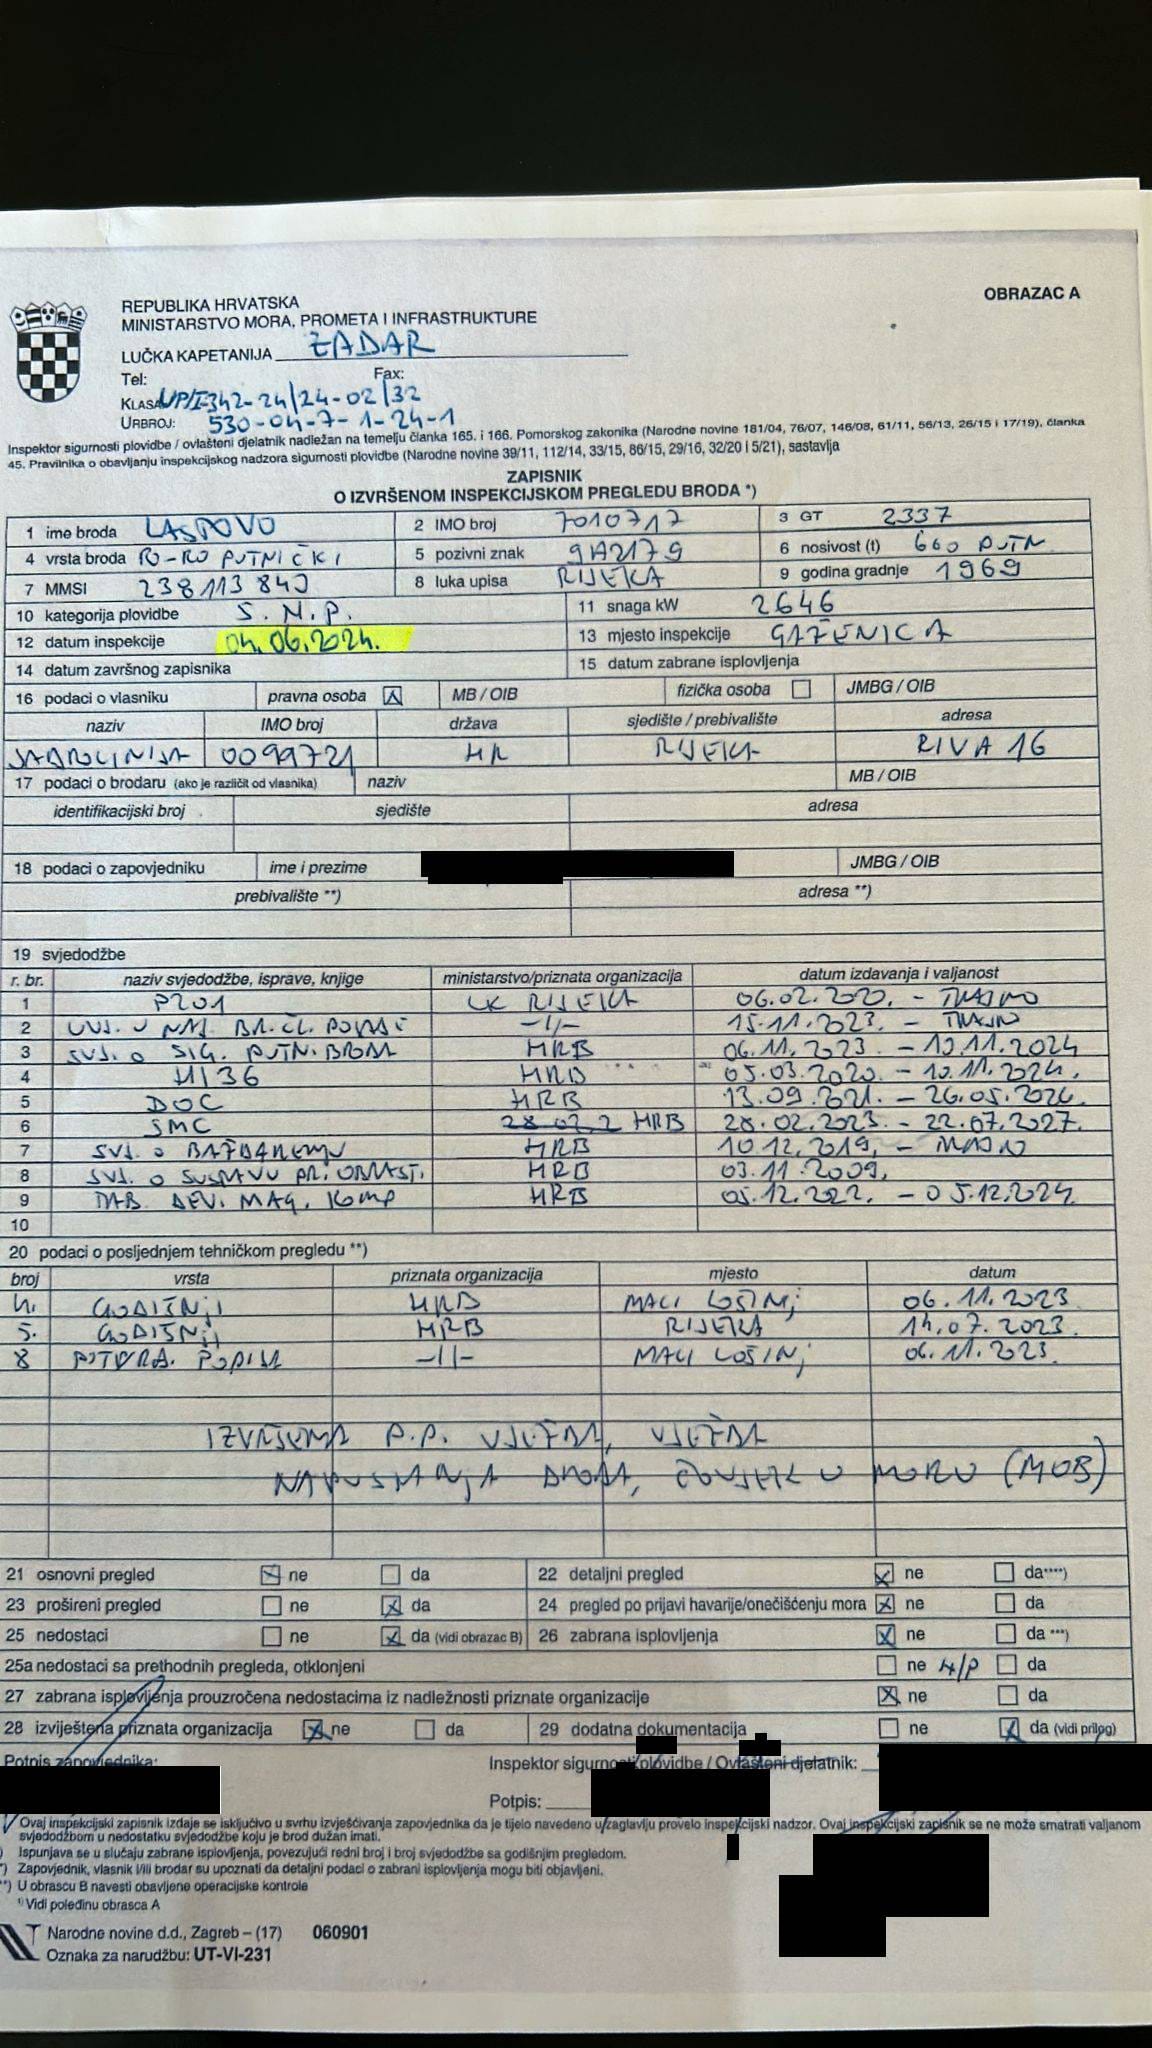 OBRAZAC A
REPUBLIKA HRVATSKA
MINISTARSTVO MORA, PROMETA I INFRASTRUKTURE
LUČKA KAPETANIJA ZADAR
Tel: Fax:
KLASA UP/I-342-24/24-02/32
URBROJ: 530-04-7-1-24-1
Inspektor sigurnosti plovidbe / ovlašteni djelatnik nadležan na temelju članka 165. i 166. Pomorskog zakonika (Narodne novine 181/04, 76/07, 146/08, 61/11, 56/13, 26/15 i 17/19), članka
45. Pravilnika o obavljanju inspekcijskog nadzora sigurnosti plovidbe (Narodne novine 39/11, 112/14, 33/15, 86/15, 29/16, 32/20 i 5/21), sastavlja
ZAPISNIK
O IZVRŠENOM INSPEKCIJSKOM PREGLEDU BRODA *)
1 ime broda LASTOVO 2 IMO broj 7010717 3 GT 2337
4 vrsta broda RO-RO PUTNIČKI 5 pozivni znak 9A2179 6 nosivost (t) 660 PUTN
7 MMSI 238113840 8 luka upisa RIJEKA 9 godina gradnje 1969
10 kategorija plovidbe S.N.P. 11 snaga kW 2646
12 datum inspekcije 04.06.2024. 13 mjesto inspekcije GAŽENICA
14 datum završnog zapisnika 15 datum zabrane isplovljenja
16 podaci o vlasniku pravna osoba X MB / OIB fizička osoba JMBG / OIB
naziv IMO broj država sjedište / prebivalište adresa
JADROLINIJA 0099721 HR RIJEKA RIVA 16
17 podaci o brodaru (ako je različit od vlasnika) naziv MB / OIB
identifikacijski broj sjedište adresa
18 podaci o zapovjedniku ime i prezime JMBG / OIB
prebivalište **) adresa **)
19 svjedodžbe
r. br. naziv svjedodžbe, isprave, knjige ministarstvo/priznata organizacija datum izdavanja i valjanost
1 P201 LK RIJEKA 06.02.2020. - TRAJNO
2 UVJ. O NAJ. BR. ČL. POSADE -//- 15.11.2023. - TRAJNO
3 SVJ. O SIG. PUTN. BRODA HRB 06.11.2023. - 10.11.2024
4 H136 HRB 05.03.2020. - 10.11.2024.
5 DOC HRB 13.09.2021. - 26.05.2026.
6 SMC 28.02.2 HRB 28.02.2023. - 22.07.2027.
7 SVJ. O BAŽDARENJU HRB 10.12.2019. - TRAJNO
8 SVJ. O SUSTAVU PR. OBRAST. HRB 03.11.2009.
9 TAB. DEV. MAG. KOMP HRB 05.12.2022. - 05.12.2024.
10
20 podaci o posljednjem tehničkom pregledu **)
broj vrsta priznata organizacija mjesto datum
4. GODIŠNJI HRB MALI LOŠINJ 06.11.2023.
5. GODIŠNJI HRB RIJEKA 14.07.2023.
8 POTVRA. POPISA -//- MALI LOŠINJ 06.11.2023.
IZVRŠENA P.P. VJEŽBA, VJEŽBA
NAPUŠTANJA BRODA, ČOVJEK U MORU (MOB)
21 osnovni pregled X ne da 22 detaljni pregled X ne da****)
23 prošireni pregled ne X da 24 pregled po prijavi havarije/onečišćenju mora X ne da
25 nedostaci ne X da (vidi obrazac B) 26 zabrana isplovljenja X ne da ***)
25a nedostaci sa prethodnih pregleda, otklonjeni ne N/P da
27 zabrana isplovljenja prouzročena nedostacima iz nadležnosti priznate organizacije X ne da
28 izviještena priznata organizacija X ne da 29 dodatna dokumentacija ne X da (vidi prilog)
Potpis zapovjednika: Inspektor sigurnosti plovidbe / Ovlašteni djelatnik:
Potpis:
Ovaj inspekcijski zapisnik izdaje se isključivo u svrhu izvješćivanja zapovjednika da je tijelo navedeno u zaglavlju provelo inspekcijski nadzor. Ovaj inspekcijski zapisnik se ne može smatrati valjanom
svjedodžbom u nedostatku svjedodžbe koju je brod dužan imati.
) Ispunjava se u slučaju zabrane isplovljenja, povezujući redni broj i broj svjedodžbe sa godišnjim pregledom.
*) Zapovjednik, vlasnik i/ili brodar su upoznati da detaljni podaci o zabrani isplovljenja mogu biti objavljeni.
**) U obrascu B navesti obavljene operacijske kontrole
¹⁾ Vidi poleđinu obrasca A
Narodne novine d.d., Zagreb – (17) 060901
Oznaka za narudžbu: UT-VI-231